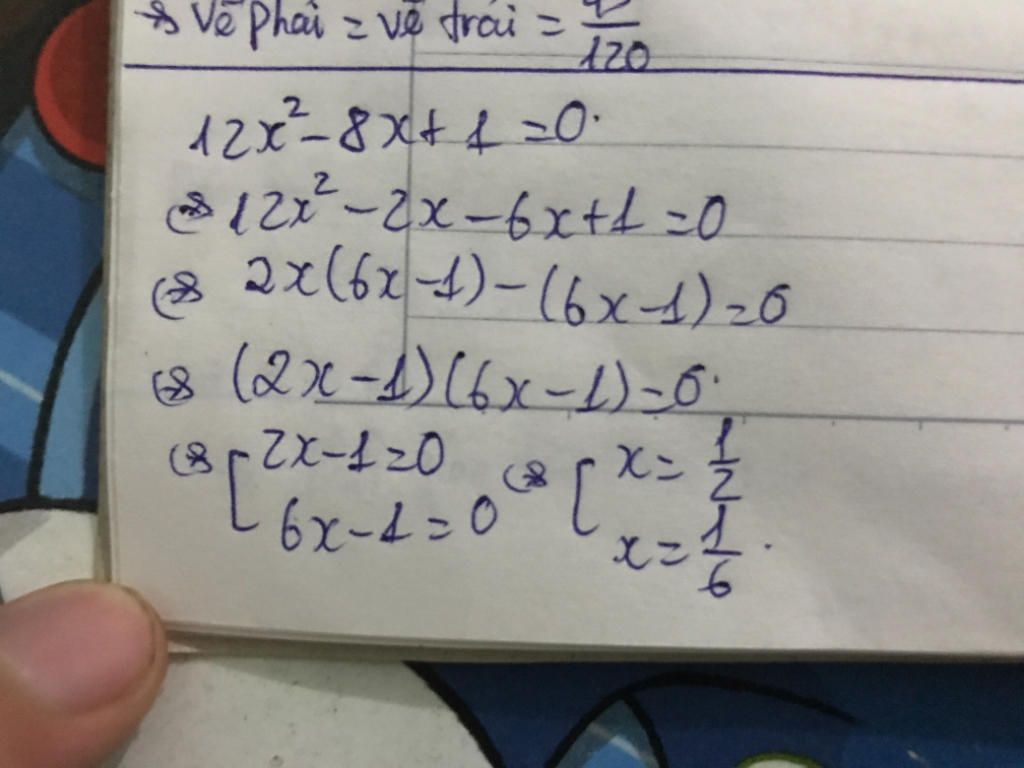 → Vế phải = vế trái = /120
12x² - 8x + 1 = 0.
⇔ 12x² - 2x - 6x + 1 = 0
⇔ 2x(6x - 1) - (6x - 1) = 0
⇔ (2x - 1)(6x - 1) = 0.
⇔ [ 2x - 1 = 0 ⇔ [ x = 1/2
6x - 1 = 0 x = 1/6.